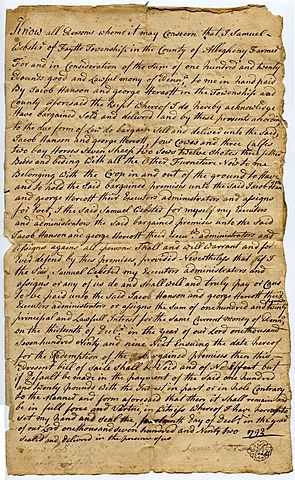 Know all Persons whome it may Concern that I Samuel
of Fayett Township in the County of Allegheny Farmer
For and in Consideration of the Sum of one hundred and twenty
pounds good and Lawful money of Penn to me in hand paid
By Jacob Hanson and george Horsott in the Township and
County aforesaid the Receipt Whereof I do hereby acknowledge
Have bargained Sold and delivered and by these presents according
to the due form of Law do bargain Sell and deliver unto the Said
Jacob Hanson and george Horsott four Cowes and three Calfes
two bay Horses Seven Sheep two Sowes Twelve three
and With all the Other Furniture
Belonging With the Crop in and out of the ground to Have
and to hold the Said bargained premises unto the Said Jacob Hanson
and george Horsott their Executors administrators and assigns
for Ever, I the Said Samuel for my self my Executors
and administrators the Said bargained premises unto the Said
Jacob Hanson and george Horsott their administrators and
assigns against all persons Shall and Will Warrant and for
Ever defend by this premises, provided Neverthelefs that if I
the Said Samuel my Executors administrators and
assigns or any of us do and Shall Well and Truly pay or Cause
to be paid unto the Said Jacob Hanson and george Horsott their
Executors administrators or assigns the Sum of one hundred and thirty
principal and Lawfull Intrest for the Same Current money of
on the thirteenth of in the year of our Lord one thousand
Seven hundred Ninty and nine Next Ensuing the date hereof
for the Redemption of the bargained premises then this
present bill of Saile Shall be Void and of No Effect but
if Default be made in the payment of the said one hundred
pounds With the Intrest in part or in Contrary
to the manner and form aforesaid that then it Shall remain
be in full force and Vertue in Witnefs Whereof I have hereunto
set my Hand and Seal the fourteenth Day of in the year
of our Lord one thousand Seven hundred and Ninty two 1793
Sealed and delivered in the presence of us